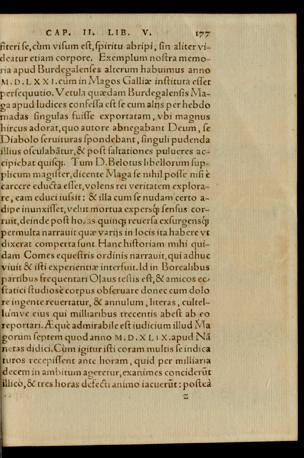 CAP. II. LIB. V. 177
fiteri se, cùm visum est, spiritu abripi, sin aliter vi-
deatur etiam corpore. Exemplum nostra memo-
ria apud Burdegalenses alterum habuimus anno
M.D.LXXI. cum in Magos Galliæ instituta esset
persequutio. Vetula quædam Burdegalensis Ma-
ga apud Iudices confessa est se cum alijs per hebdo
madas singulas fuisse exportatam, vbi magnus
hircus adorat, quo autore abnegabant Deum, se
Diabolo seruituras spondebant, singuli pudenda
illius osculabãtur, & post saltationes pulueres ac-
cipiebat quisq;. Tum D. Belotus libellorum sup-
plicum magister, dicente Maga se nihil posse nisi è
carcere educta esset, volens rei veritatem explora-
re, eam educi iussit: & illa cum se nudam certo a-
dipe inunxisset, velut mortua expersq; sensus cor-
ruit, deinde post horas quinq; reuersa exsurgensq;
permulta narrauit quæ varijs in locis ita habere vt
dixerat comperta sunt. Hanc historiam mihi qui-
dam Comes equestris ordinis narrauit, qui adhuc
viuit & isti experientiæ interfuit. Id in Borealibus
partibus frequentari Olaus testis est, & amicos ec-
statici studiosè corpus obseruare donec cum dolo
re ingente reuertatur, & annulum, literas, cultel-
lumve eius qui milliaribus trecentis abest ab eo
reportari. Æquè admirabile est iudicium illud Ma
gorum septem quod anno M.D.XLIX. apud Nã
netas didici. Cùm igitur isti coram multis se indica
turos recepissent ante horam, quid per milliaria
decem in ambitum ageretur, exanimes conciderũt
illicò, & tres horas defecti animo iacuerũt: posteà
z